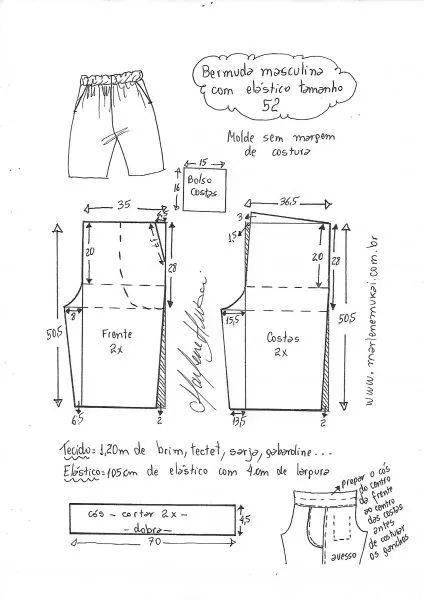 Bermuda masculina
com elástico tamanho
52
Molde sem margem
de costura
15
16
Bolso
Costas
35
4,5
20
28
50,5
8
Frente
2x
6,5
2
36,5
3
1,5
20
28
50,5
15,5
Costas
2x
13,5
2
Marlene Mukai
www.marlenemukai.com.br
Tecido= 1,20m de brim, tectel, sarja, gabardine...
Elástico= 105cm de elástico com 4cm de largura
cós - cortar 2x -
- dobra -
4,5
70
pregar o cós
do centro
da frente
ao centro
das costas
antes
de costurar
os ganchos
avesso